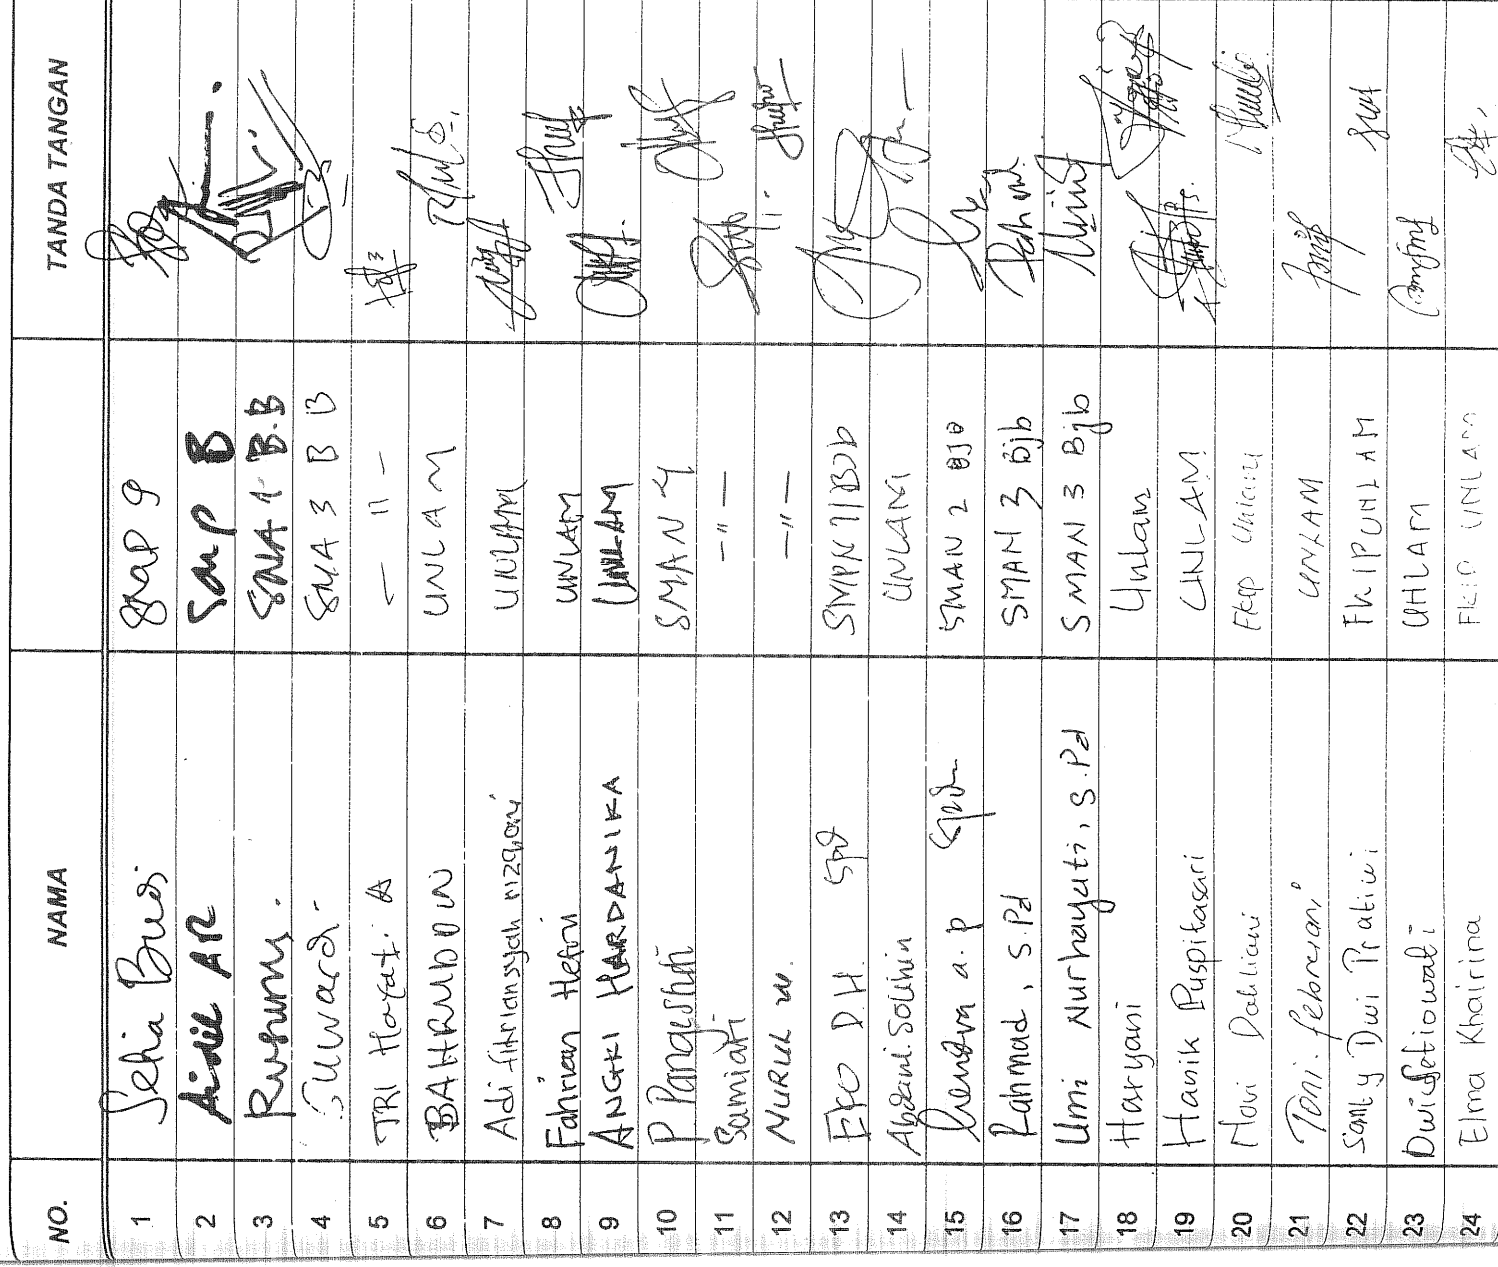 NO. NAMA TANDA TANGAN
1 Setia Budi SMP 9
2 Aidil AR SMP B
3 Rusum. SMA 1 B.B
4 Suward. SMA 3 B B
5 TRI Hayati. A — 11 —
6 BAHRUDDIN UNLAM
7 Adi fikriansyah nizqoni UNLAM
8 Fahrian Hefni UNLAM
9 ANGKI HARDANIKA UNLAM
10 P Pangestuti SMAN 4
11 Samiati — " —
12 NURUL W. — " —
13 EKO D.H. Spd SMPN 11 BJb
14 Abdani. Solihin UNLAM
15 hendra a.p Spd SMAN 2 BJB
16 Rahmad, S.Pd SMAN 3 Bjb Rahmd
17 Umi Nurhayati, S.Pd SMAN 3 Bjb
18 Haryani Unlam
19 Hanik Puspitasari UNLAM
20 Novi Dahliani FKIP Unlam
21 Toni. febriani UNLAM
22 Santy Dwi Pratiwi FKIP UNLAM
23 Dwi Setiowati UNLAM
24 Elma Khairina FKIP UNLAM